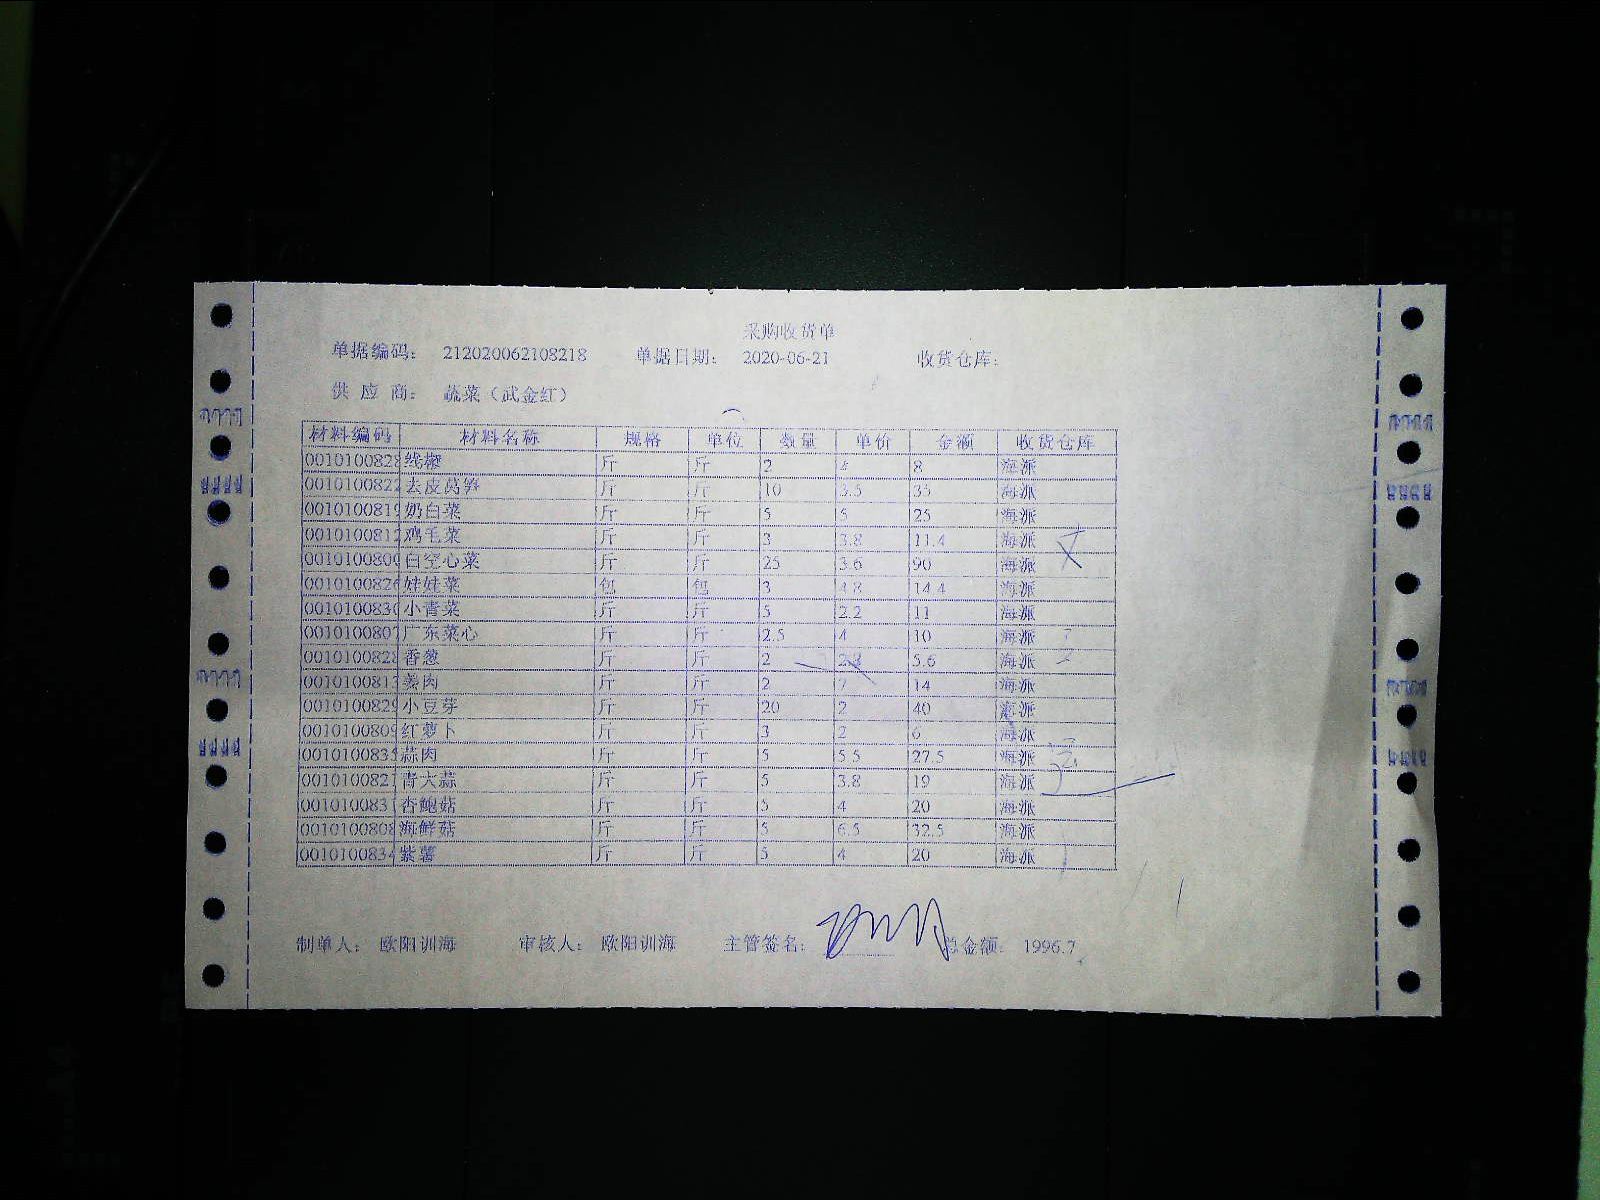 采购收货单
单据编码: 212020062108218 单据日期: 2020-06-21 收货仓库:
供 应 商: 蔬菜（武金红）
材料编码 材料名称 规格 单位 数量 单价 金额 收货仓库
0010100828 线椒 斤 斤 2 4 8 海派
0010100822 去皮莴笋 斤 斤 10 3.5 35 海派
0010100819 奶白菜 斤 斤 5 5 25 海派
0010100812 鸡毛菜 斤 斤 3 3.8 11.4 海派
0010100800 白空心菜 斤 斤 25 3.6 90 海派
0010100826 娃娃菜 包 包 3 4.8 14.4 海派
0010100830 小青菜 斤 斤 5 2.2 11 海派
0010100807 广东菜心 斤 斤 2.5 4 10 海派
0010100828 香葱 斤 斤 2 2.8 5.6 海派
0010100813 姜肉 斤 斤 2 7 14 海派
0010100829 小豆芽 斤 斤 20 2 40 海派
0010100809 红萝卜 斤 斤 3 2 6 海派
0010100835 蒜肉 斤 斤 5 5.5 27.5 海派
0010100821 青大蒜 斤 斤 5 3.8 19 海派
0010100831 杏鲍菇 斤 斤 5 4 20 海派
0010100808 海鲜菇 斤 斤 5 6.5 32.5 海派
0010100834 紫薯 斤 斤 5 4 20 海派
制单人: 欧阳训海 审核人: 欧阳训海 主管签名: 总金额: 1996.7